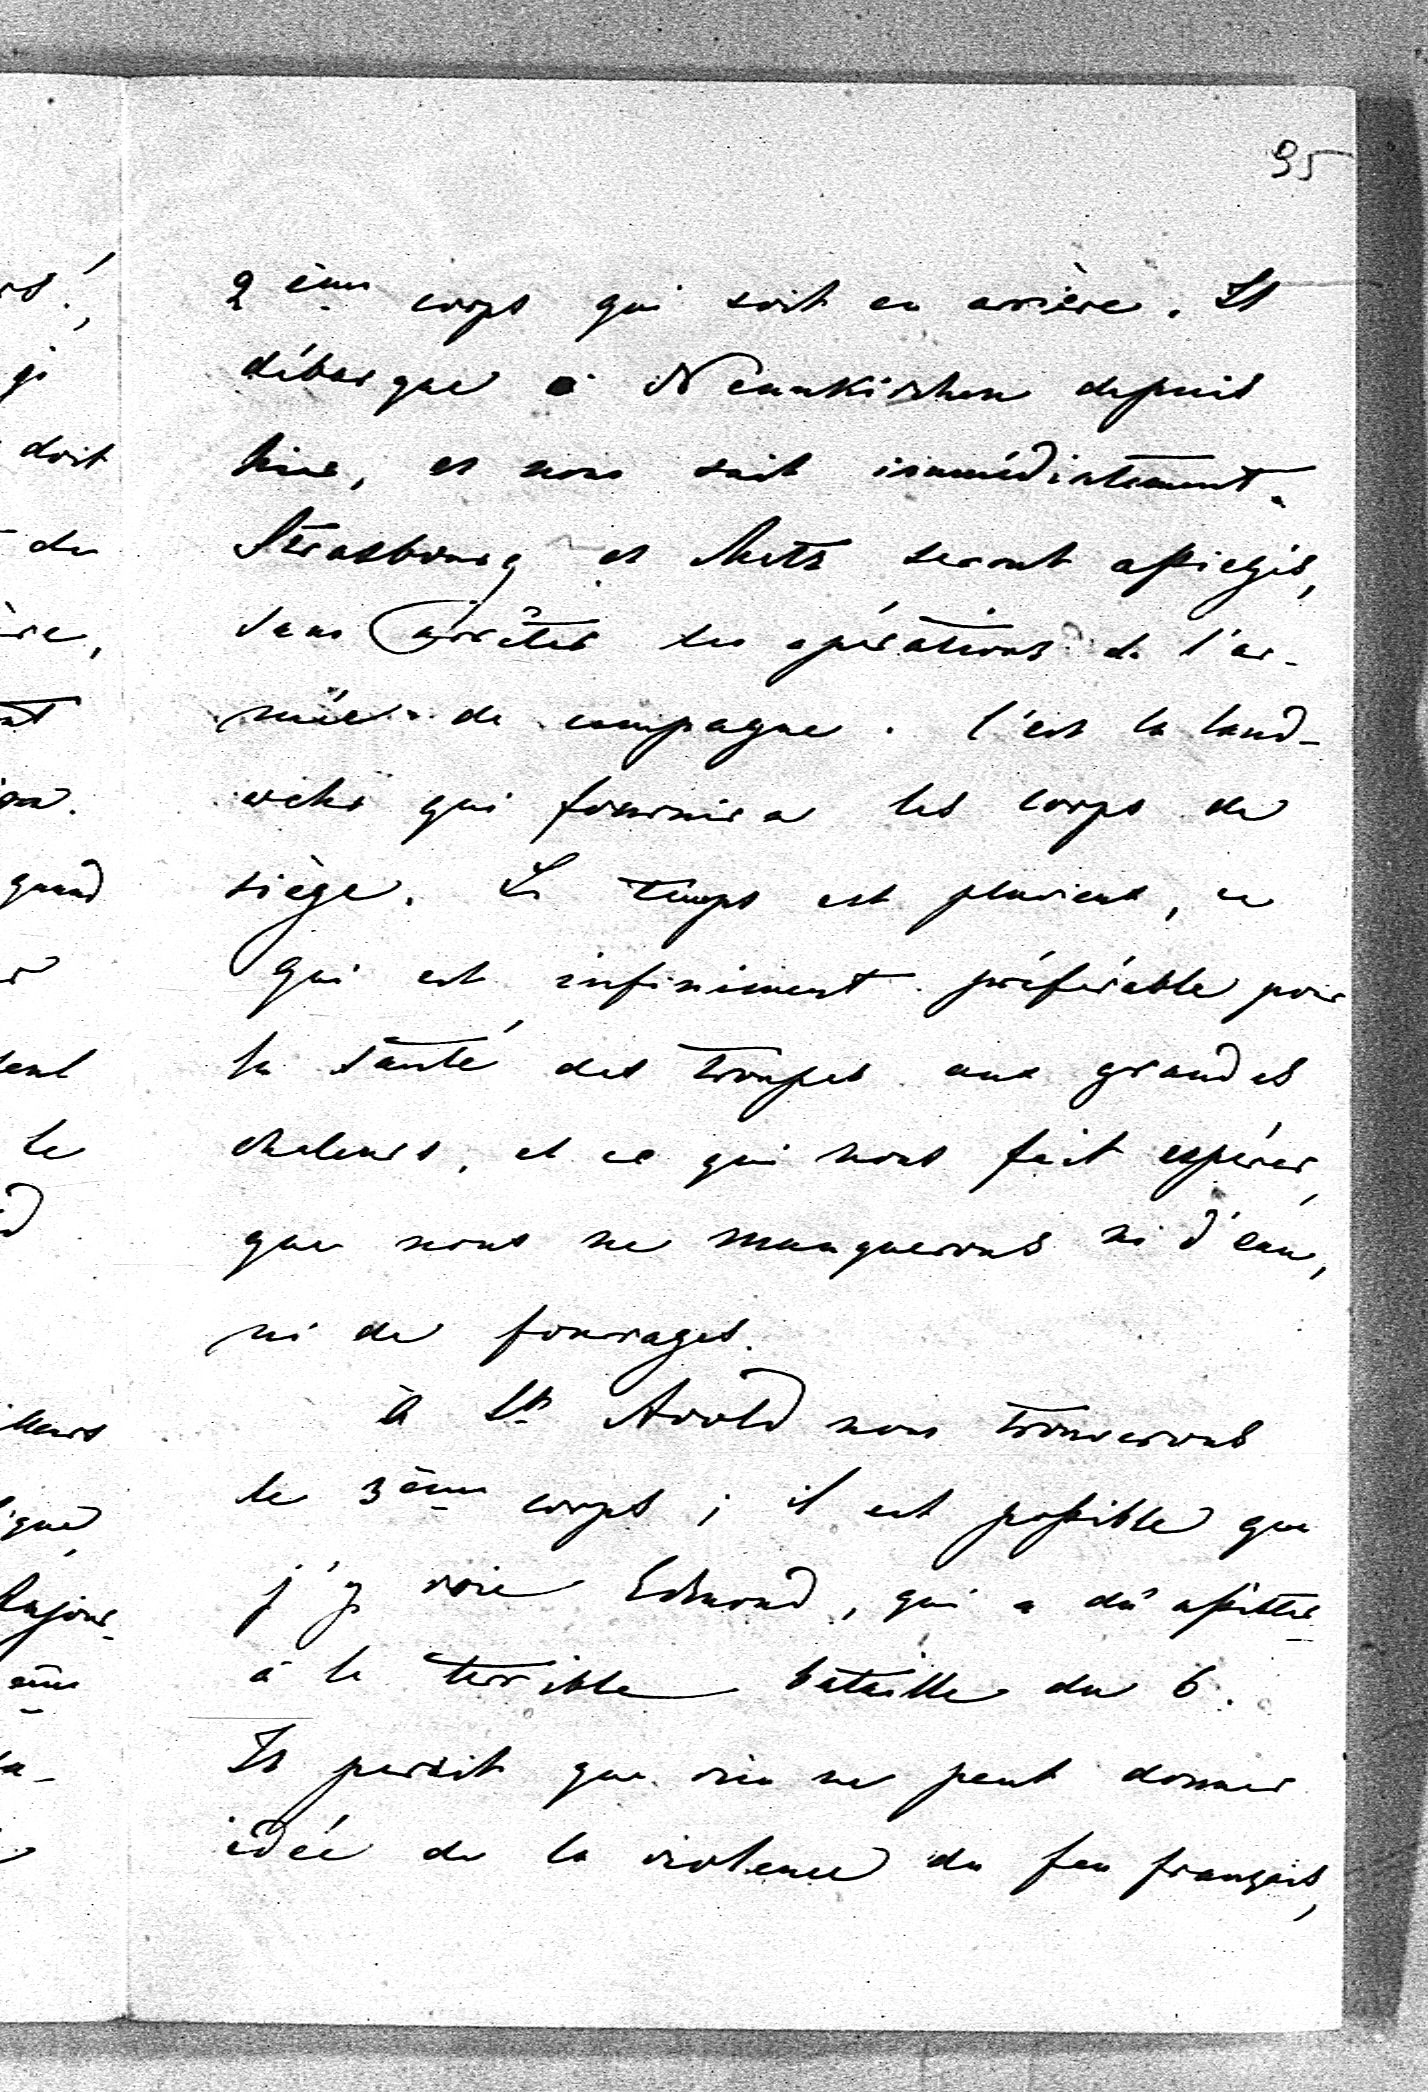 95
2ème corps qui soit en arrière. Il
débarque à Neunkirchen depuis
hier, et nous suit immédiatement.
Strasbourg et Metz seront assiégés,
sans arrêter les opérations de l'ar-
mée de campagne. C'est la land-
wehr qui fournira les corps de
siège. Le temps est pluvieux, ce
qui est infiniment préférable pour
la santé des troupes aux grandes
chaleurs, et ce qui nous fait espérer,
que nous ne manquerons ni d'eau,
ni de fourrages.
à St. Avold nous trouverons
le 3ème corps ; il est possible que
j'y voie Edmond, qui a dû assister
à la terrible bataille du 6.
Il paraît que rien ne peut donner
idée de la violence du feu français,